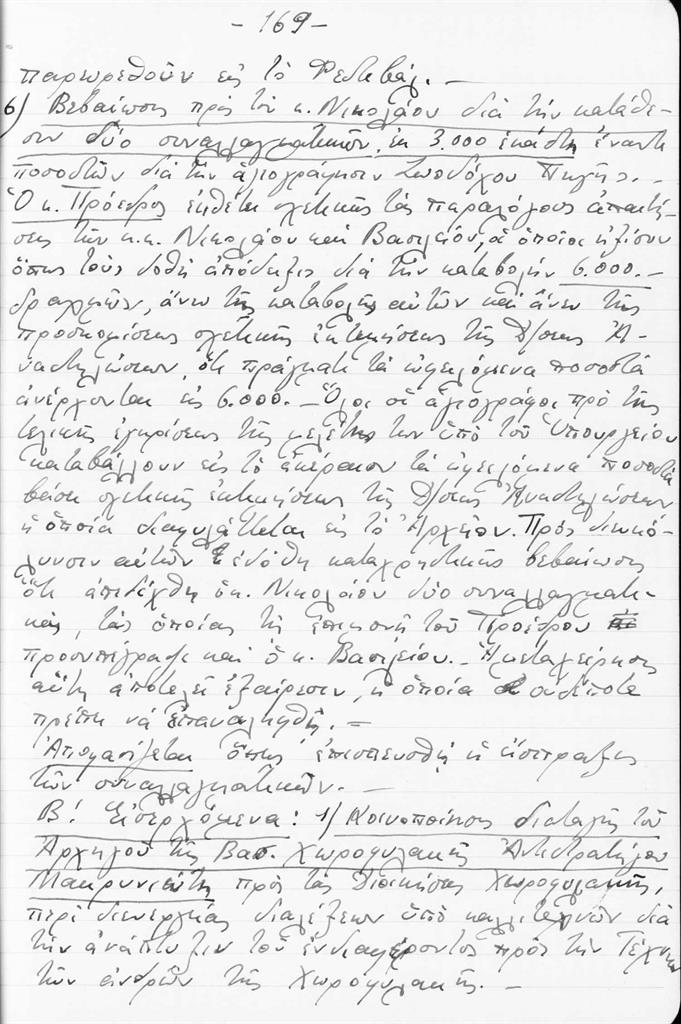 - 169 -
παρευρεθοῦν εἰς τὸ Φεστιβάλ. —
6) Βεβαίωσις πρὸς τὸν κ. Νικολάου διὰ τὴν κατάθε-
σιν δύο συναλλαγματικῶν, ἐκ 3.000 ἑκάστη ἔναντι
ποσοστῶν διὰ τὴν ἁγιογράφησιν Ζωοδόχου Πηγῆς. —
Ὁ κ. Πρόεδρος ἐκθέτει σχετικῶς τὰς παραλόγους ἀπαιτή-
σεις τῶν κ.κ. Νικολάου καὶ Βασιλείου, οἱ ὁποῖοι ἠξίουν
ὅπως τοὺς δοθῇ ἀπόδειξις διὰ τὴν καταβολὴν 6.000. —
δραχμῶν, ἄνευ τῆς καταβολῆς αὐτῶν καὶ ἄνευ τῆς
προσκομίσεως σχετικῆς ἐκτιμήσεως τῆς Δ/σεως Ἀ-
ναστηλώσεων, ὅτι πράγματι τὰ ὀφειλόμενα ποσοστὰ
ἀνέρχονται εἰς 6.000. — Ὅλοι οἱ ἁγιογράφοι πρὸ τῆς
τελικῆς ἐγκρίσεως τῆς μελέτης των ὑπὸ τοῦ Ὑπουργείου
καταβάλλουν εἰς τὸ ἀκέραιον τὰ ὀφειλόμενα ποσοστὰ
βάσει σχετικῆς ἐκτιμήσεως τῆς Δ/σεως Ἀναστηλώσεων
ἡ ὁποία διαφυλάττεται εἰς τὸ Ἀρχεῖον. Πρὸς διευκό-
λυνσιν αὐτῶν ἐδόθη καταχρηστικῶς βεβαίωσις
ὅτι ἀπεδέχθη ὁ κ. Νικολάου δύο συναλλαγματι-
κάς, τὰς ὁποίας τῇ ἐπιμονῇ τοῦ Προέδρου
προσυπέγραψε καὶ ὁ κ. Βασιλείου. — Ἡ μεταχείρησις
αὕτη ἀποτελεῖ ἐξαίρεσιν, ἡ ὁποία οὐδέποτε
πρέπει νὰ ἐπαναληφθῇ. —
Ἀποφασίζεται ὅπως ἐπισπευσθῇ ἡ εἴσπραξις
τῶν συναλλαγματικῶν. —
Β! Εἰσερχόμενα: 1) Κοινοποίησις διαταγῆς τοῦ
Ἀρχηγοῦ τῆς Βασ. Χωροφυλακῆς Ἀντιστρατήγου
Μακρυνιώτη πρὸς τὰς Διοικήσεις Χωροφυλακῆς,
περὶ διενεργείας διαλέξεων ὑπὸ καλλιτεχνῶν διὰ
τὴν ἀνάπτυξιν τοῦ ἐνδιαφέροντος πρὸς τὴν Τέχνην
τῶν ἀνδρῶν τῆς Χωροφυλακῆς. —